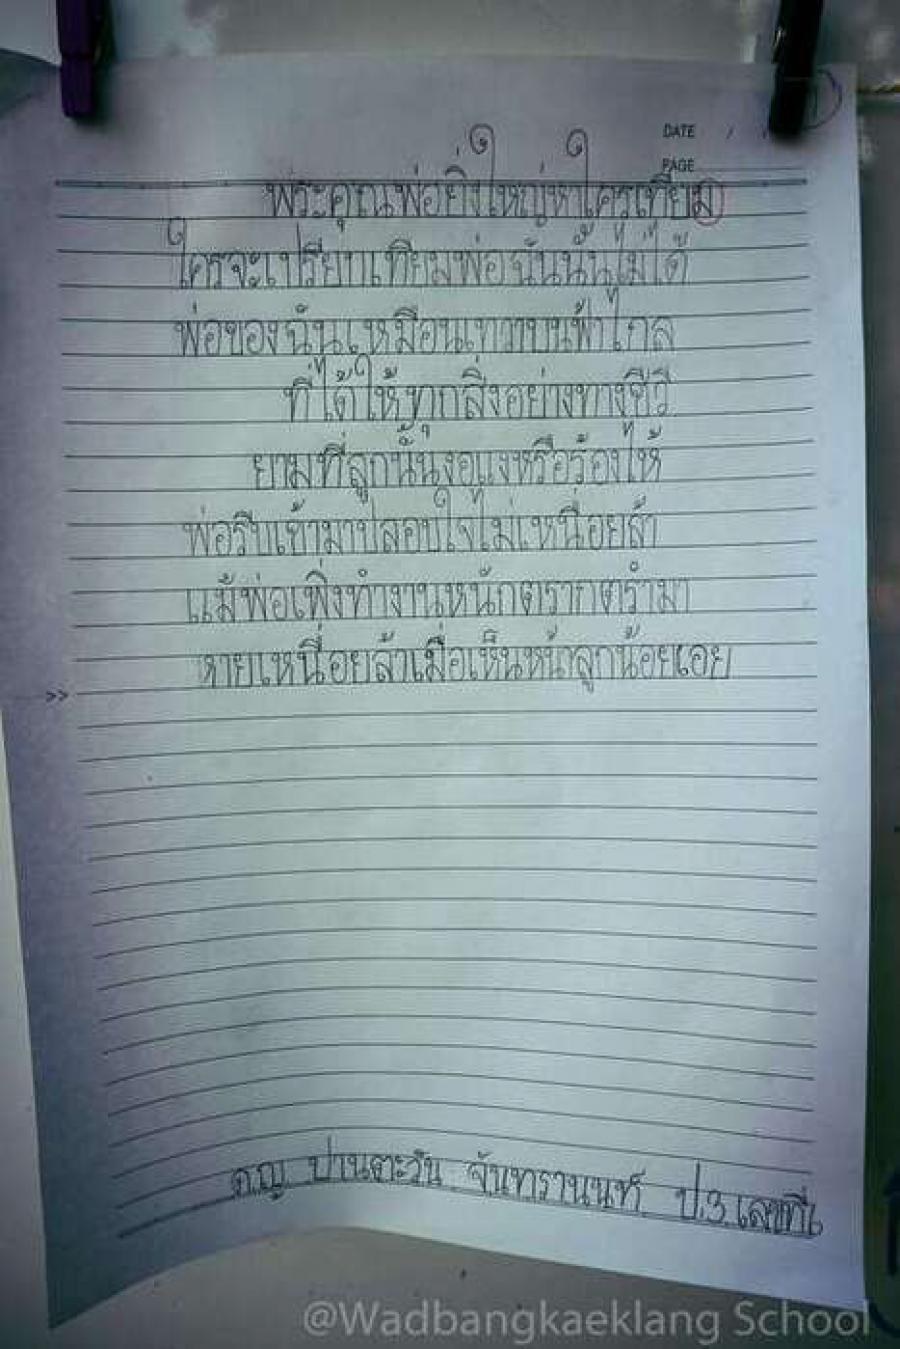 DATE / /
PAGE
พระคุณพ่อยิ่งใหญ่หาใครเทียม
ใครจะเปรียบเทียมพ่อฉันนั้นไม่ได้
พ่อของฉันเหมือนเทวาบนฟ้าไกล
ที่ได้ให้ทุกสิ่งอย่างทางชีวี
ยามที่ลูกนั้นงอแงหรือร้องไห้
พ่อรีบเข้ามาปลอบใจไม่เหนื่อยล้า
แม้พ่อเพิ่งทำงานหนักตรากตรำมา
หายเหนื่อยล้าเมื่อเห็นหน้าลูกน้อยเอย
>>
ด.ญ ปานตะวัน จันทรานนท์ ป.3 เลขที่
@Wadbangkaeklang School